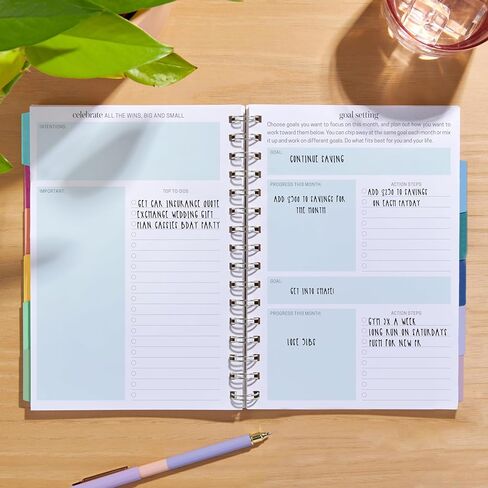 celebrate ALL THE WINS, BIG AND SMALL
INTENTIONS:
IMPORTANT:
TOP TO DOS:
GET CAR INSURANCE QUOTE
EXCHANGE WEDDING GIFT
PLAN CASSIES BDAY PARTY
goal setting
Choose goals you want to focus on this month, and plan out how you want to
work toward them below. You can chip away at the same goal each month or mix
it up and work on different goals. Do what fits best for you and your life.
GOAL:
CONTINUE SAVING
PROGRESS THIS MONTH:
ADD $500 TO SAVINGS FOR
THE MONTH
ACTION STEPS
ADD $250 TO SAVINGS
ON EACH PAYDAY
GOAL:
GET INTO SHAPE!
PROGRESS THIS MONTH:
LOSE 5LBS
ACTION STEPS
GYM 3X A WEEK
LONG RUN ON SATURDAYS
PUSH FOR NEW PR